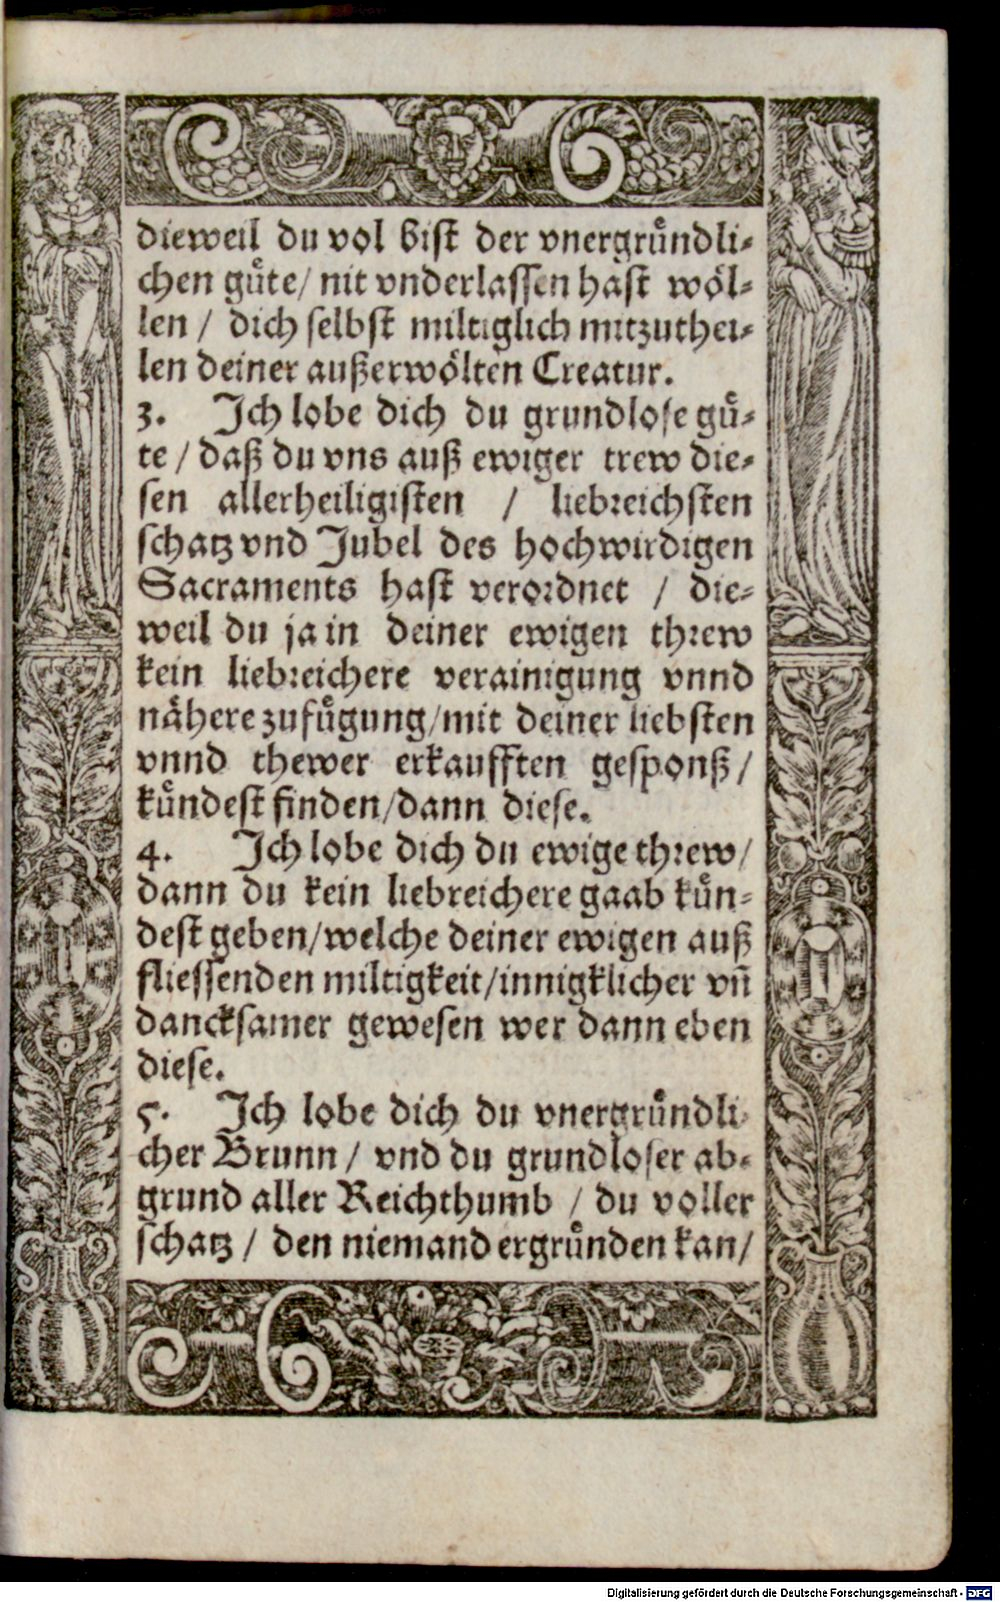 dieweil du vol bist der vnergruͤndli⸗
chen guͤte/ nit vnderlassen hast woͤl⸗
len / dich selbst miltiglich mitzuthei⸗
len deiner außerwoͤlten Creatur.
3. Ich lobe dich du grundlose guͤ⸗
te / daß du vns auß ewiger trew die⸗
sen allerheiligisten / liebreichsten
schatz vnd Jubel des hochwirdigen
Sacraments hast verordnet / die⸗
weil du ja in deiner ewigen threw
kein liebreichere verainigung vnnd
naͤhere zufuͤgung/mit deiner liebsten
vnnd thewer erkaufften gesponß/
kuͤndest finden/dann diese.
4. Ich lobe dich du ewige threw/
dann du kein liebreichere gaab kuͤn⸗
dest geben/welche deiner ewigen auß
fliessenden miltigkeit/innigklicher vn̄
dancksamer gewesen wer dann eben
diese.
5. Ich lobe dich du vnergruͤndli⸗
cher Brunn/ vnd du grundloser ab⸗
grund aller Reichthumb / du voller
schatz / den niemand ergruͤnden kan/
Digitalisierung gefördert durch die Deutsche Forschungsgemeinschaft - DFG